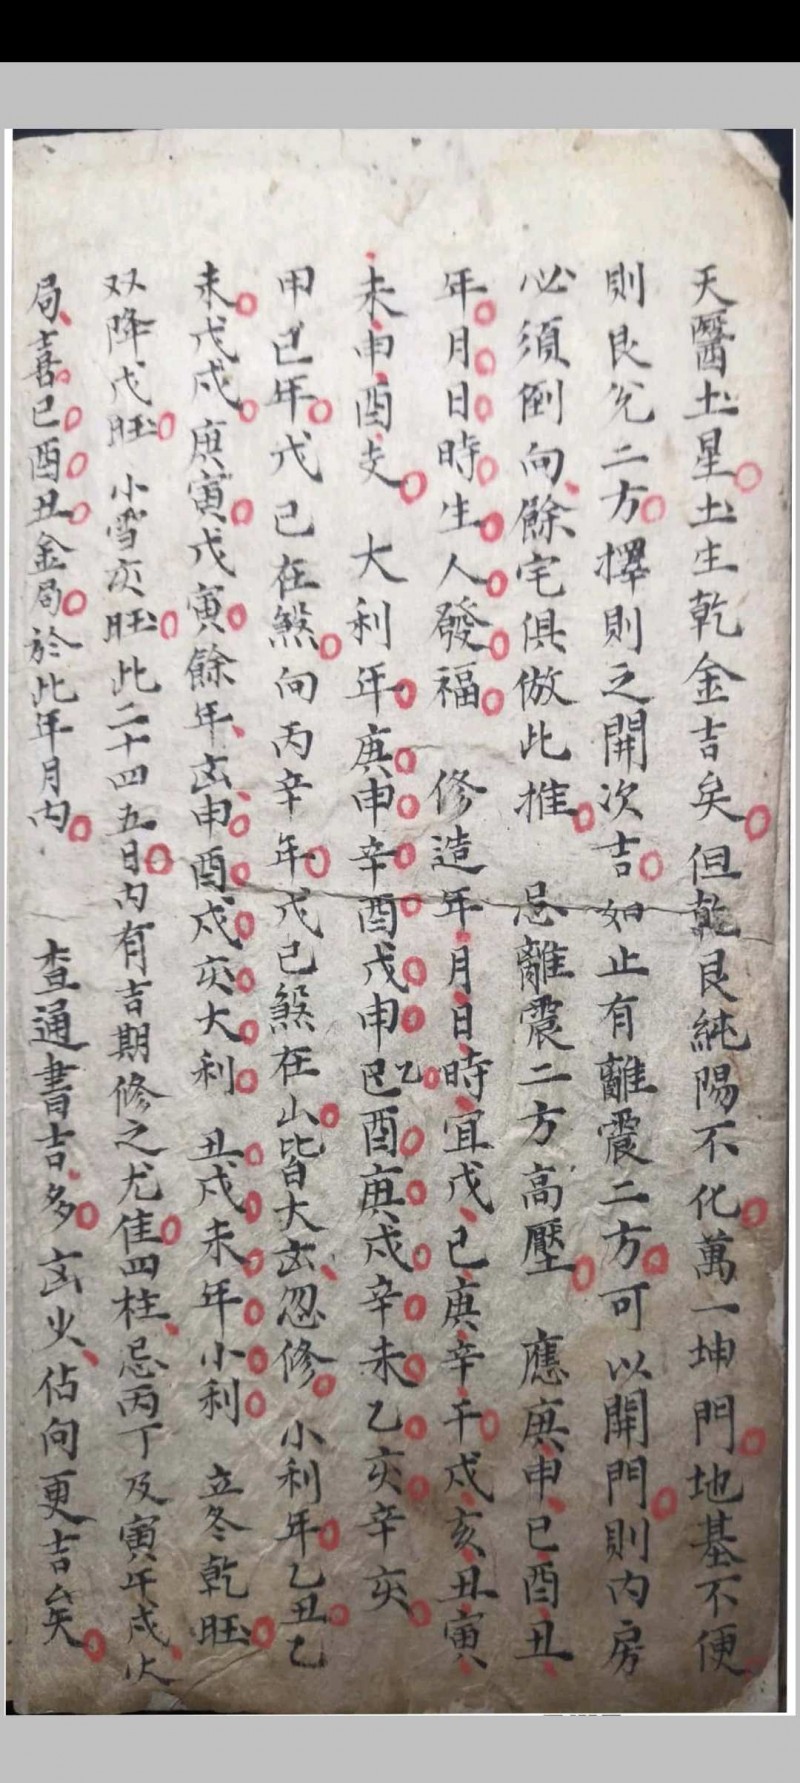 天醫土星土生乾金吉矣但乾艮純陽不化萬一坤門地基不便
則艮兌二方擇則之開次吉如止有離震二方可以開門則內房
必須倒向餘宅俱倣此推 忌離震二方高壓 應庚申巳酉丑
年月日時生人發福 修造年月日時宜戊己庚辛干戌亥丑寅
未申酉支 大利年庚申辛酉戊申乙巳酉庚戌辛未乙亥辛亥
甲己年戊己在煞向丙辛年戊己煞在山皆大凶忽修 小利年乙丑乙
未戊戌庚寅戊寅餘年凶申酉戌亥大利 丑戌未年小利 立冬乾旺
双降戊旺 小雪亥旺此二十四五日內有吉期修之尤佳四柱忌丙丁及寅午戌火
局喜巳酉丑金局於此年月內 查通書吉多凶少佔向更吉矣